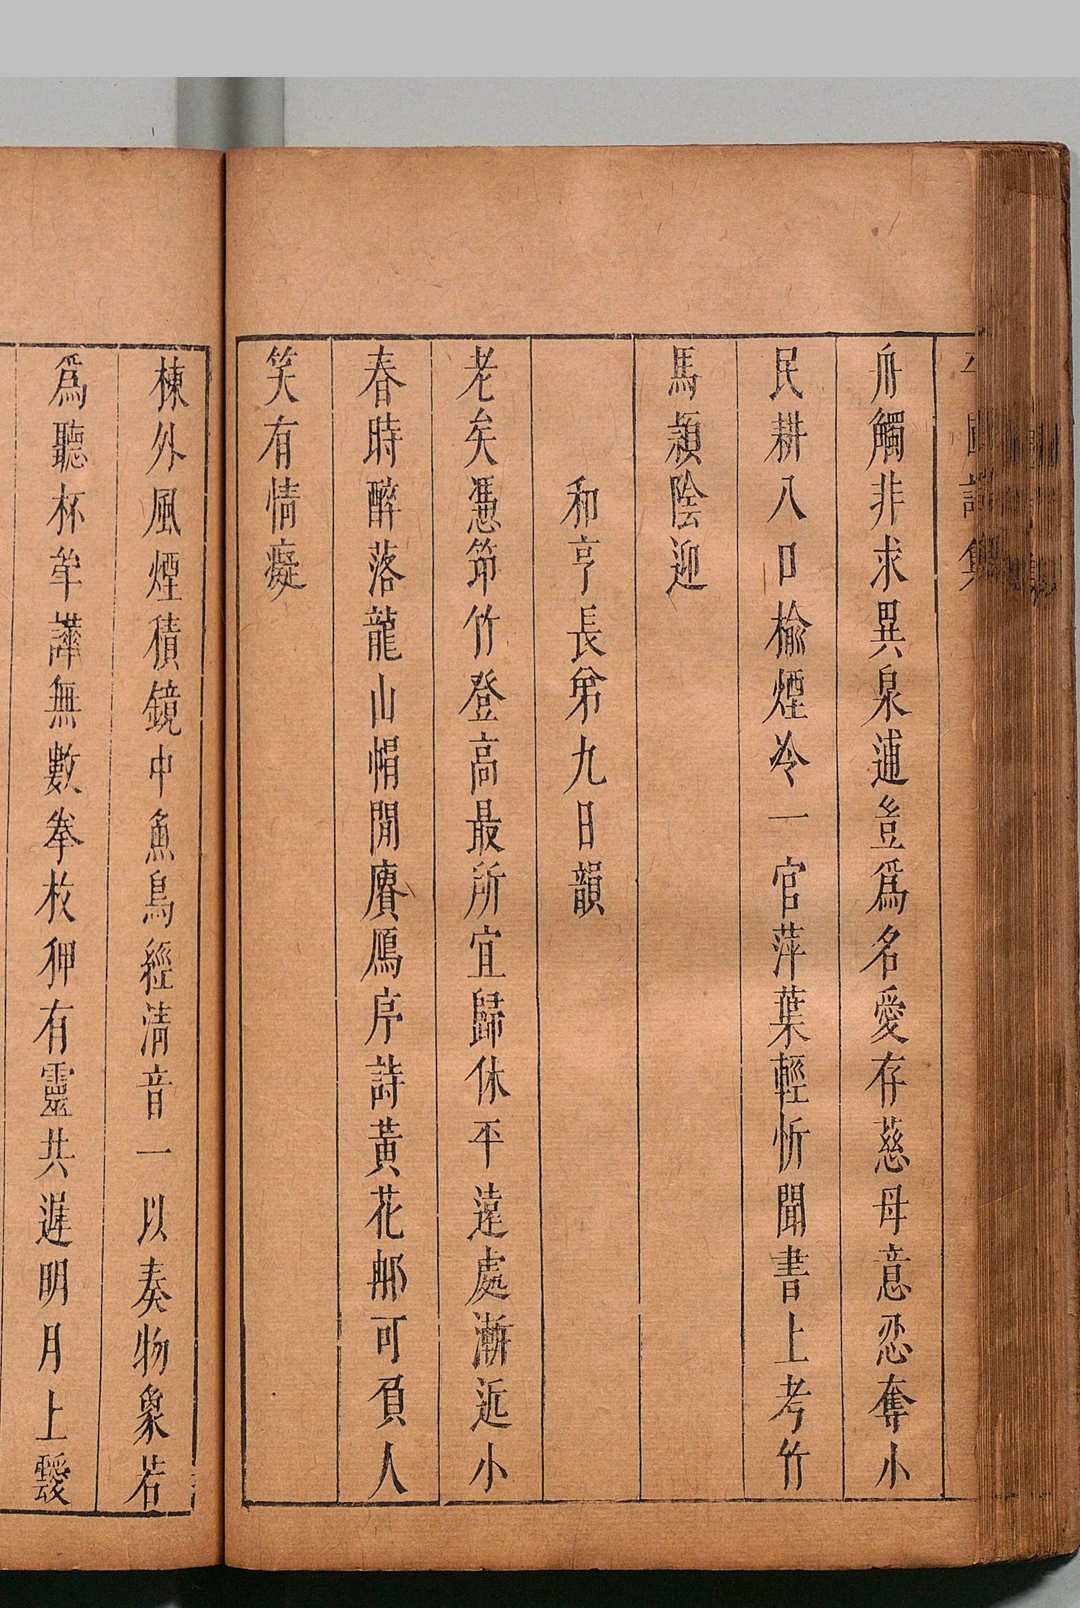 詩集
舟觸非求異泉逋豈爲名愛存慈母意忍奪小
民耕八口榆煙冷一官萍葉輕忻聞書上考竹
馬潁陰迎
和亨長弟九日韻
老矣憑笻竹登高最所宜歸休平遠處漸近小
春時醉落龍山帽閒賡鴈序詩黃花那可負人
笑有情癡
棟外風煙積鏡中魚鳥經清音一以奏物象若
爲聽杯斝譁無數拳枚狎有靈共遲明月上靉